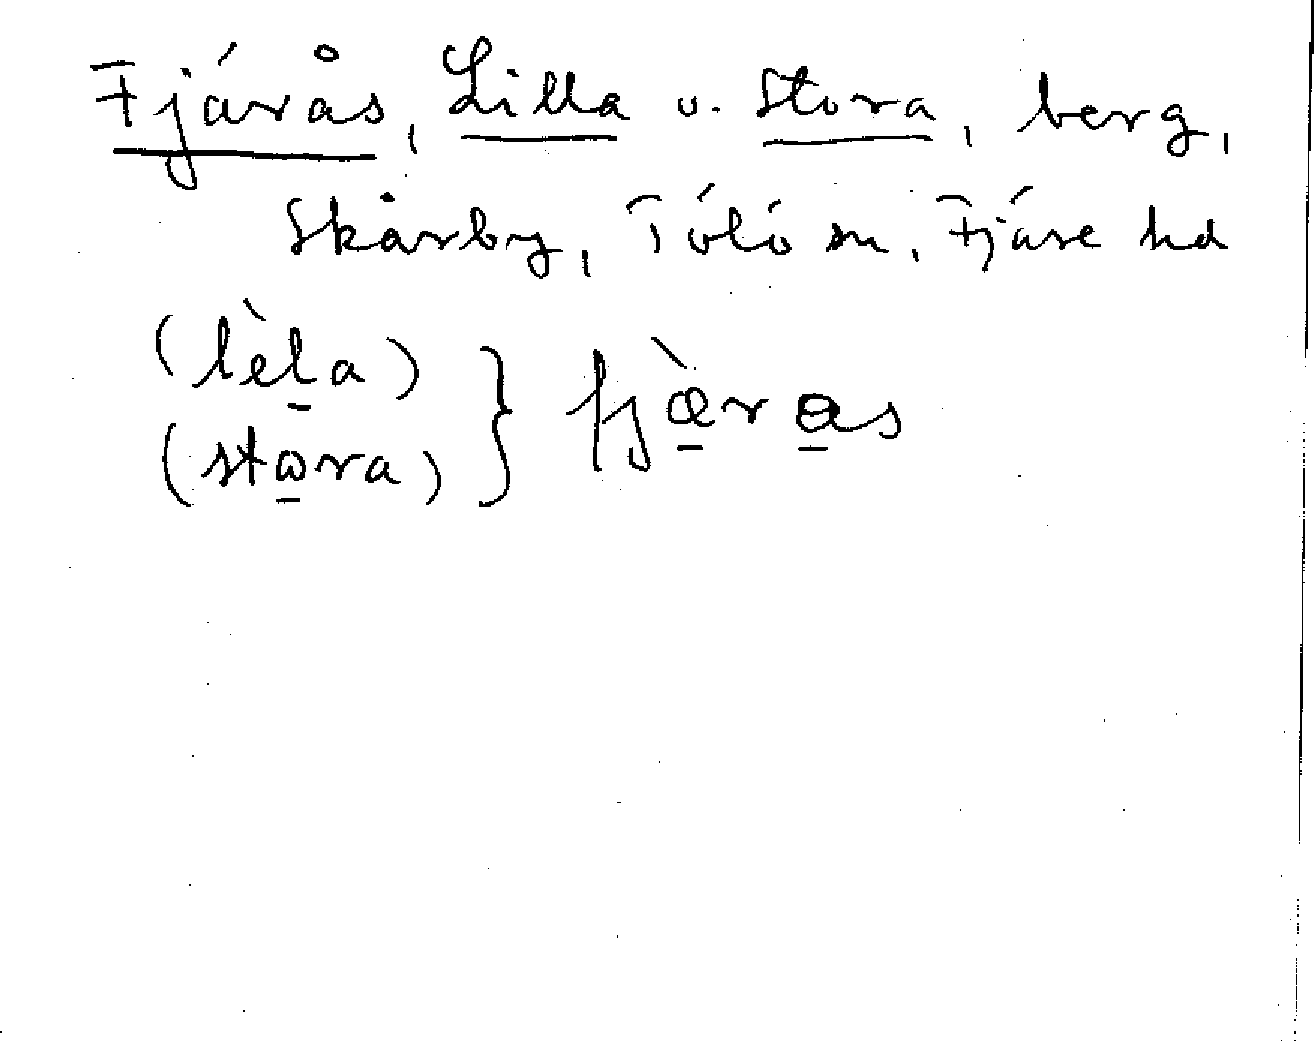 Fjärås, Lilla o. Stora, berg,
Skårby, Tölö sn, Fjäre hd
(lèla)
(stωra) } fjæ̀ras